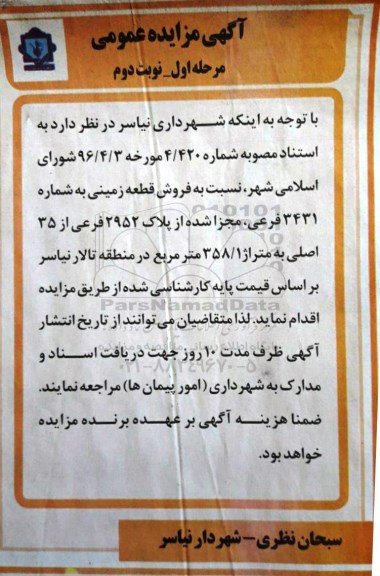 آگهی مزایده عمومی
مرحله اول_نوبت دوم
با توجه به اینکه شهرداری نیاسر در نظر دارد به
استناد مصوبه شماره ۴/۴۲۰ مورخه ۹۶/۴/۳ شورای
اسلامی شهر، نسبت به فروش قطعه زمینی به شماره
۳۴۳۱ فرعی، مجزا شده از پلاک ۲۹۵۲ فرعی از ۳۵
اصلی به متراژ ۳۵۸/۱ متر مربع در منطقه تالار نیاسر
بر اساس قیمت پایه کارشناسی شده از طریق مزایده
ParsNamadData
اقدام نماید. لذا متقاضیان می توانند از تاریخ انتشار
آگهی ظرف مدت ۱۰ روز جهت دریافت اسناد و
۰۲۱-۸۸۳۴۹۶۷۰-۵
مدارک به شهرداری (امور پیمان ها) مراجعه نمایند.
ضمنا هزینه آگهی بر عهده برنده مزایده
خواهد بود.
سبحان نظری - شهردار نیاسر